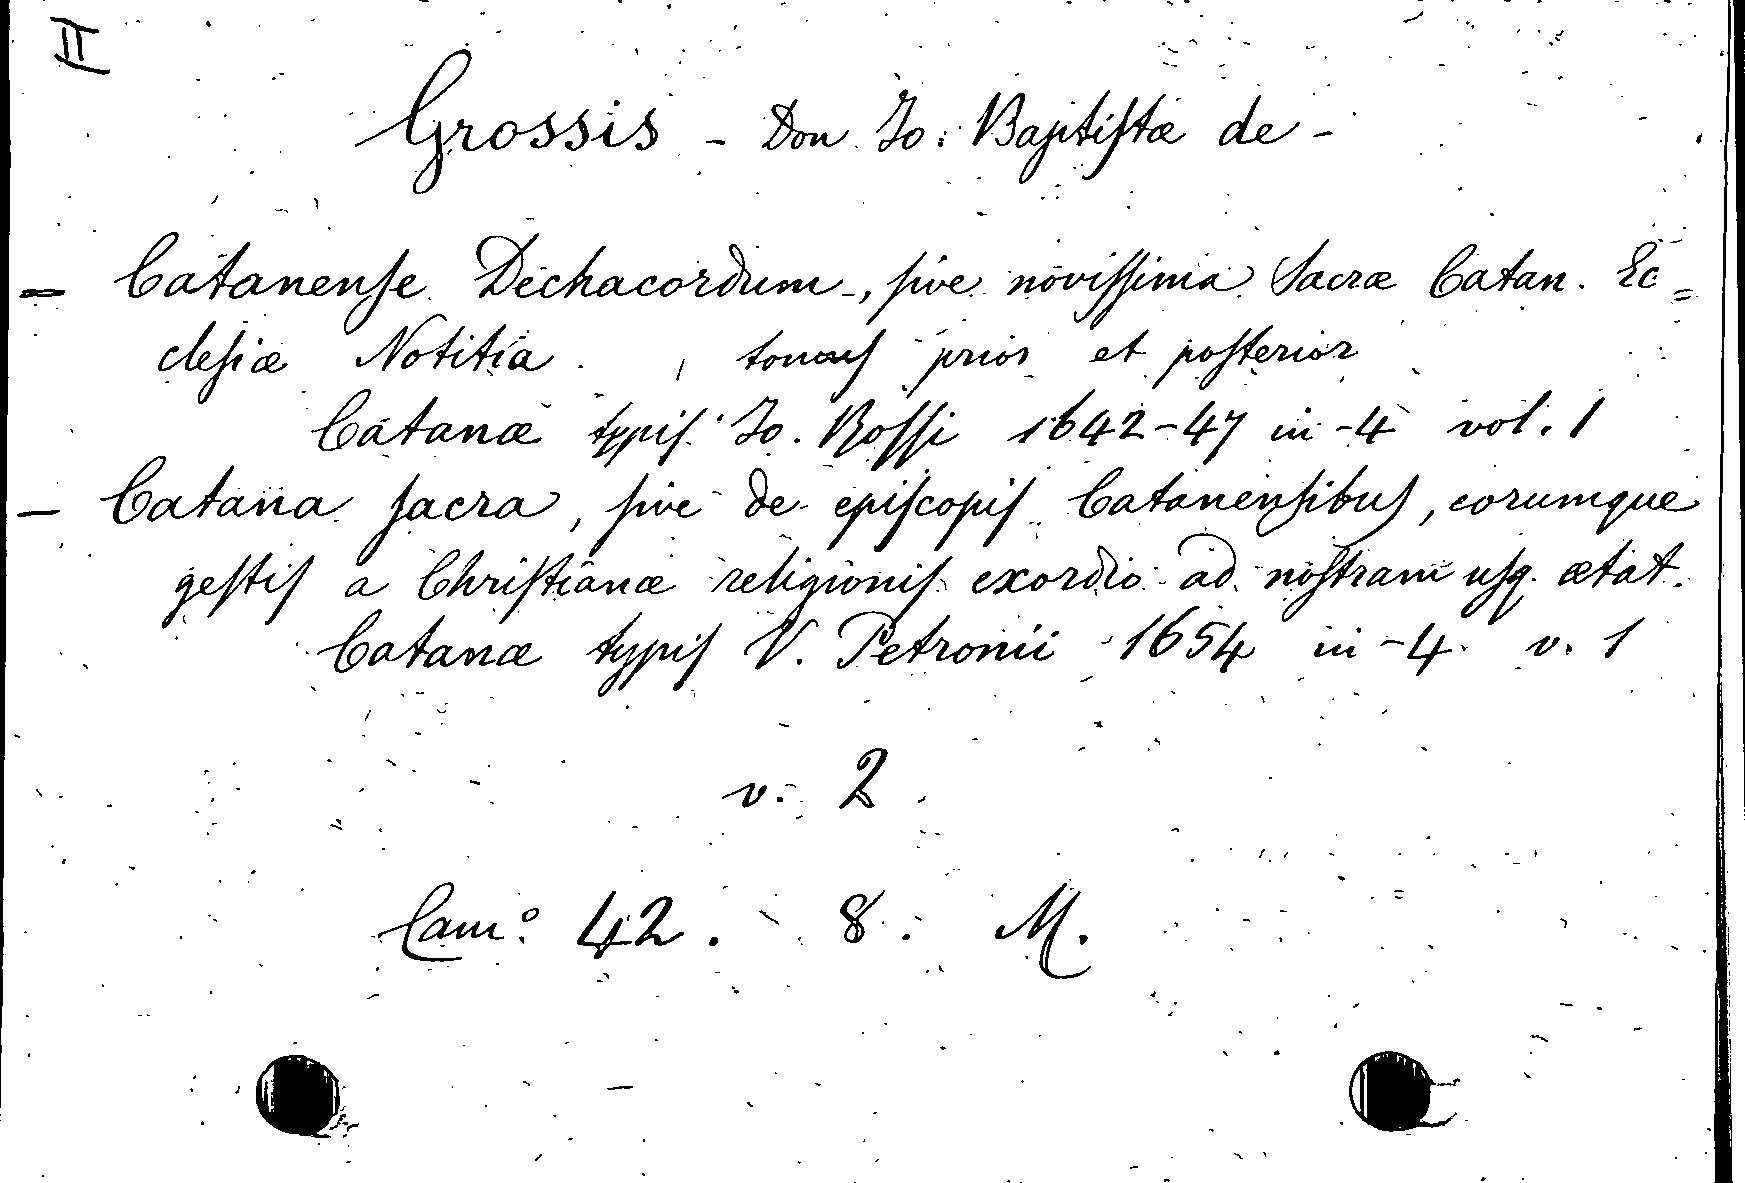 II
Grossis - Don Jo: Baptiſtæ de -
- Catanenſe Dechacordum, ſive noviſſima Sacræ Catan. Ec=
cleſiæ Notitia , tomuſ prior et poſterior
Catanæ typiſ Jo. Roſſi 1642-47 in-4 vol. 1
- Catana ſacra, ſive de epiſcopiſ Catanenſibuſ, eorumque
geſtiſ a Chriſtianæ religioniſ exordio ad noſtram uſq. ætat.
Catanæ typiſ V. Petronii 1654 in-4. v. 1
v. 2
Cam.º 42. 8. M.